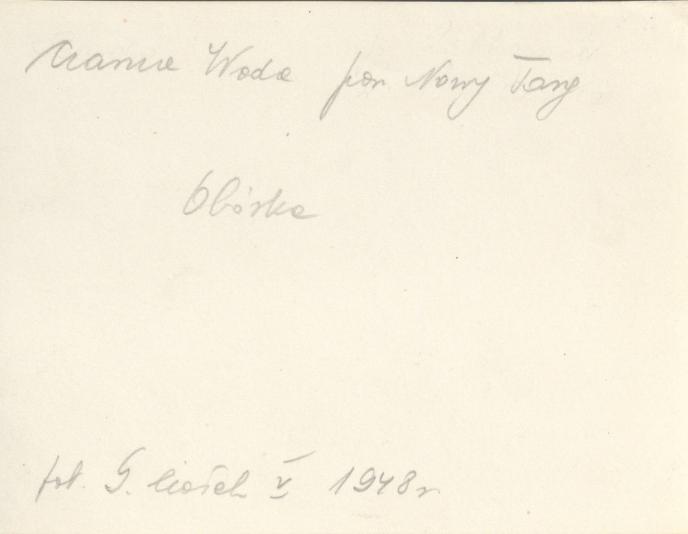 Czarna Woda pow Nowy Targ
Obórka
fot. G. V 1948 r.